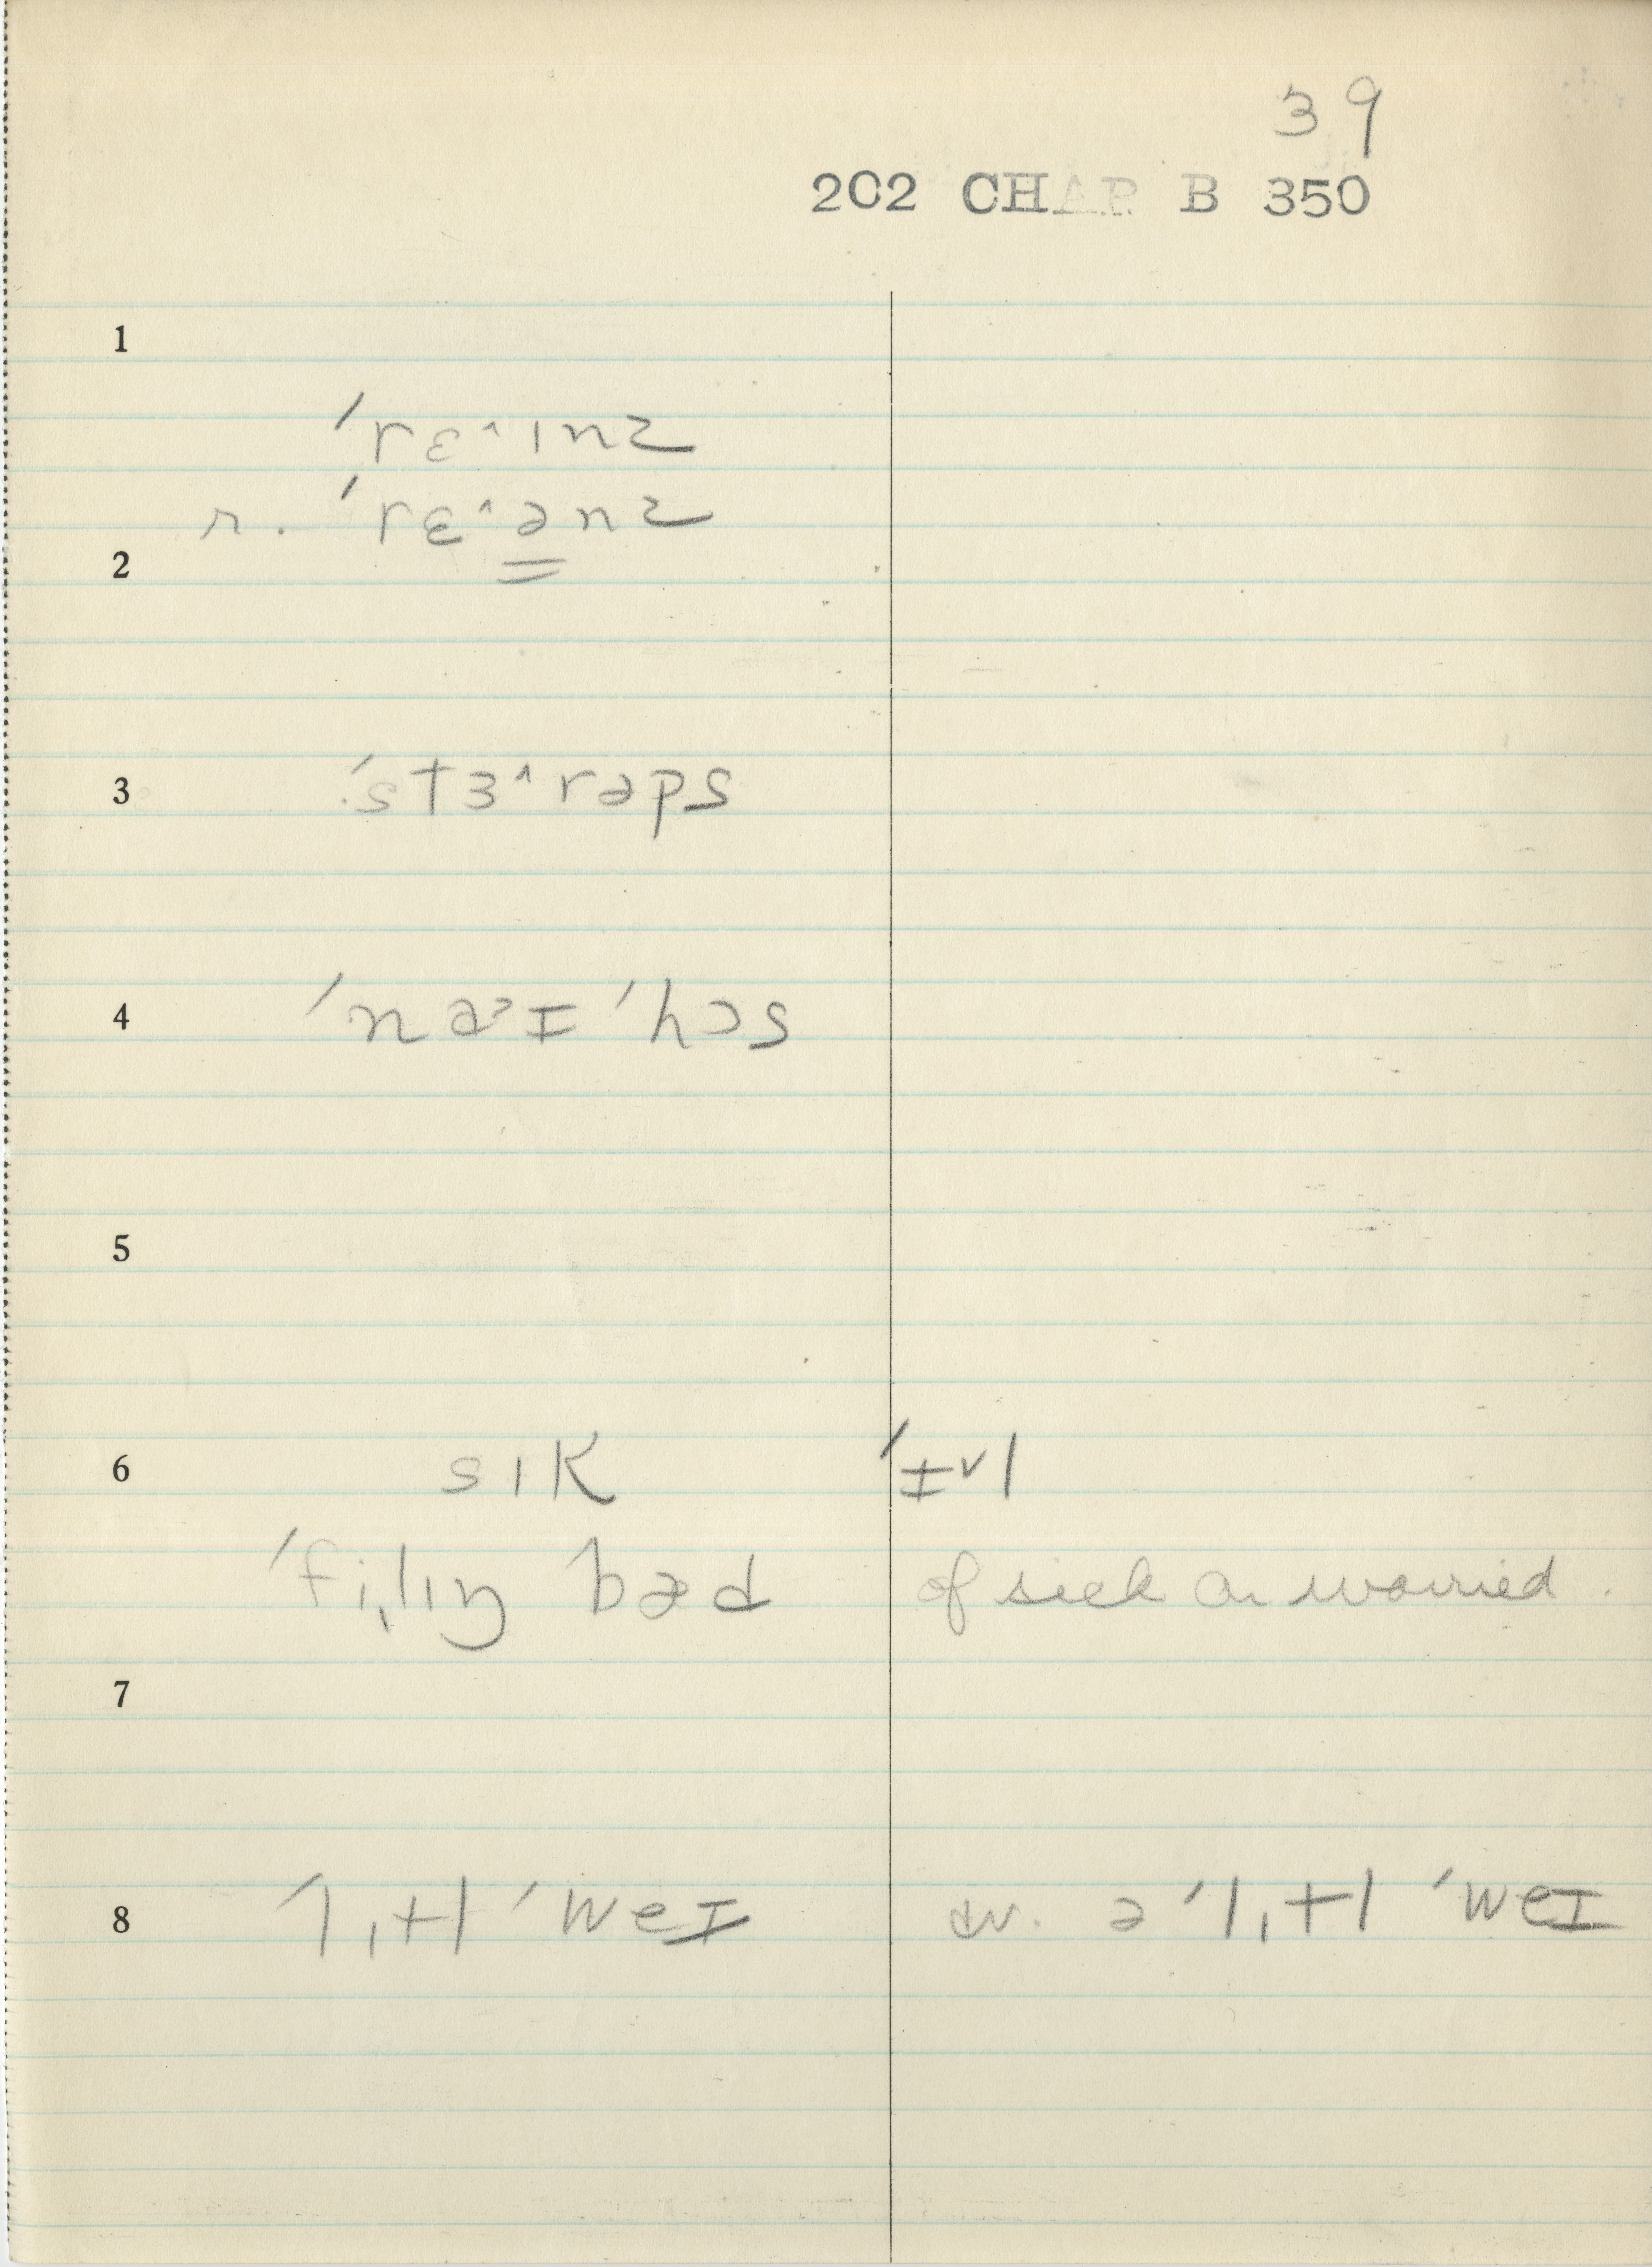 39
202 CHAP B 350
1
ˈrɛ^ɪnz
r. ˈrɛ^ənz
2
3 ˈstɜ^rəps
4 ˈnɐ˃ɪ ˈhɔs
5
6 sɪk ˈɪvl
ˈfi,lɪŋ bæd of sick or worried.
7
8 ˈl,ɪtl ˈweɪ av. ə ˈl,ɪtl ˈweɪ